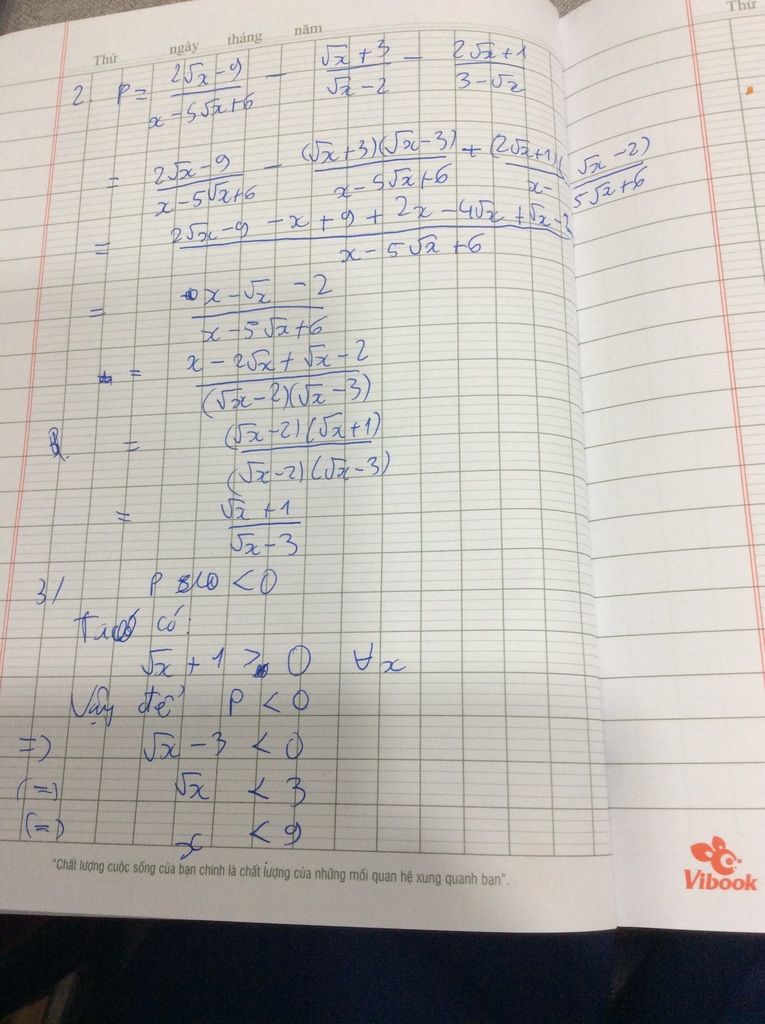 Thứ ngày tháng năm
Thứ
2. P = (2√x - 9)/(x - 5√x + 6) - (√x + 3)/(√x - 2) - (2√x + 1)/(3 - √x)
= (2√x - 9)/(x - 5√x + 6) - (√x + 3)(√x - 3)/(x - 5√x + 6) + (2√x + 1)(√x - 2)/(x - 5√x + 6)
= (2√x - 9 - x + 9 + 2x - 4√x + √x - 2)/(x - 5√x + 6)
= (x - √x - 2)/(x - 5√x + 6)
= (x - 2√x + √x - 2)/((√x - 2)(√x - 3))
= (√x - 2)(√x + 1)/((√x - 2)(√x - 3))
= (√x + 1)/(√x - 3)
3/ P < 0
Ta có:
√x + 1 > 0 ∀x
Vậy để P < 0
=> √x - 3 < 0
(=) √x < 3
(=) x < 9
"Chất lượng cuộc sống của bạn chính là chất lượng của những mối quan hệ xung quanh bạn".
Vibook